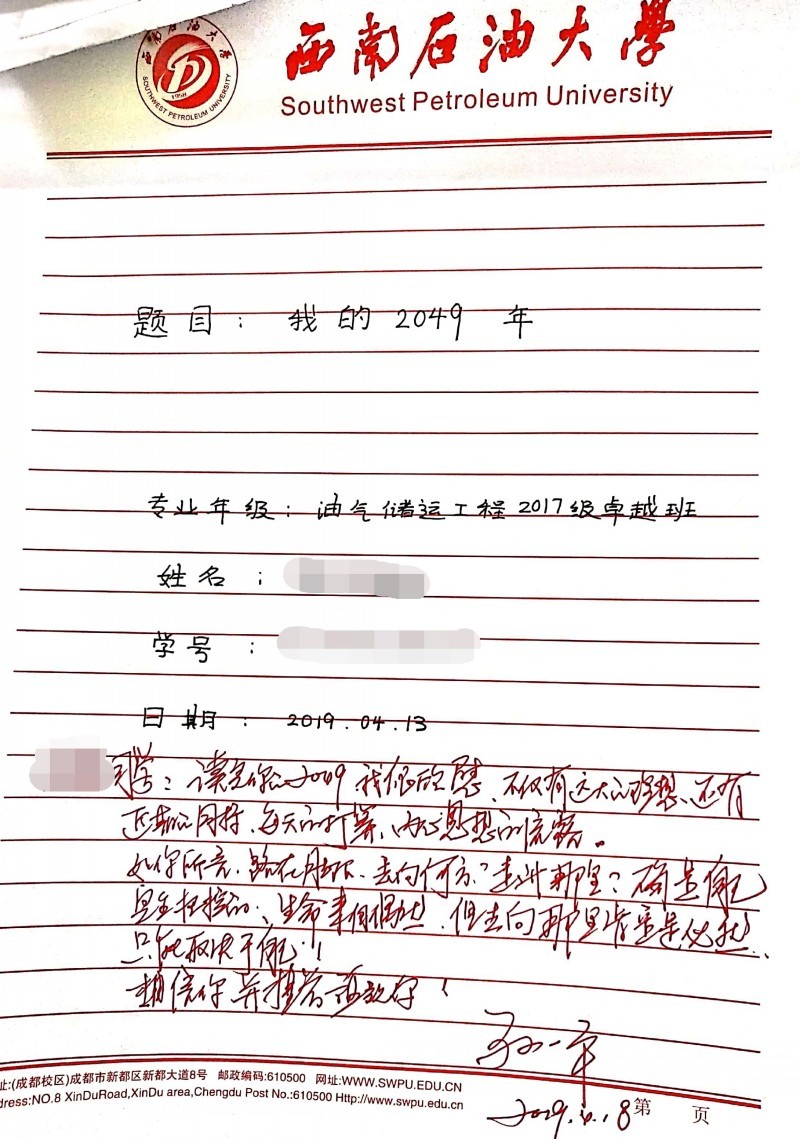 西南石油大學
SOUTHWEST PETROLEUM UNIVERSITY
1958
西南石油大學
Southwest Petroleum University
题目：我的2049年
专业年级：油气储运工程2017级卓越班
姓名：
学号：
日期：2019.04.13
同学：读完你的2049我很欣慰、不仅有远大的理想、还有
近期的目标、每天的打算、内心思想的流露。
如你所言，路在脚下、去向何方？走进那里？确是自己
生命来自偶然，但去向那里皆是必然
只能取决于自己！
相信你并
2019.4.18
第 页
址:(成都校区)成都市新都区新都大道8号 邮政编码:610500 网址:WWW.SWPU.EDU.CN
dress:NO.8 XinDuRoad,XinDu area,Chengdu Post No.:610500 Http://www.swpu.edu.cn